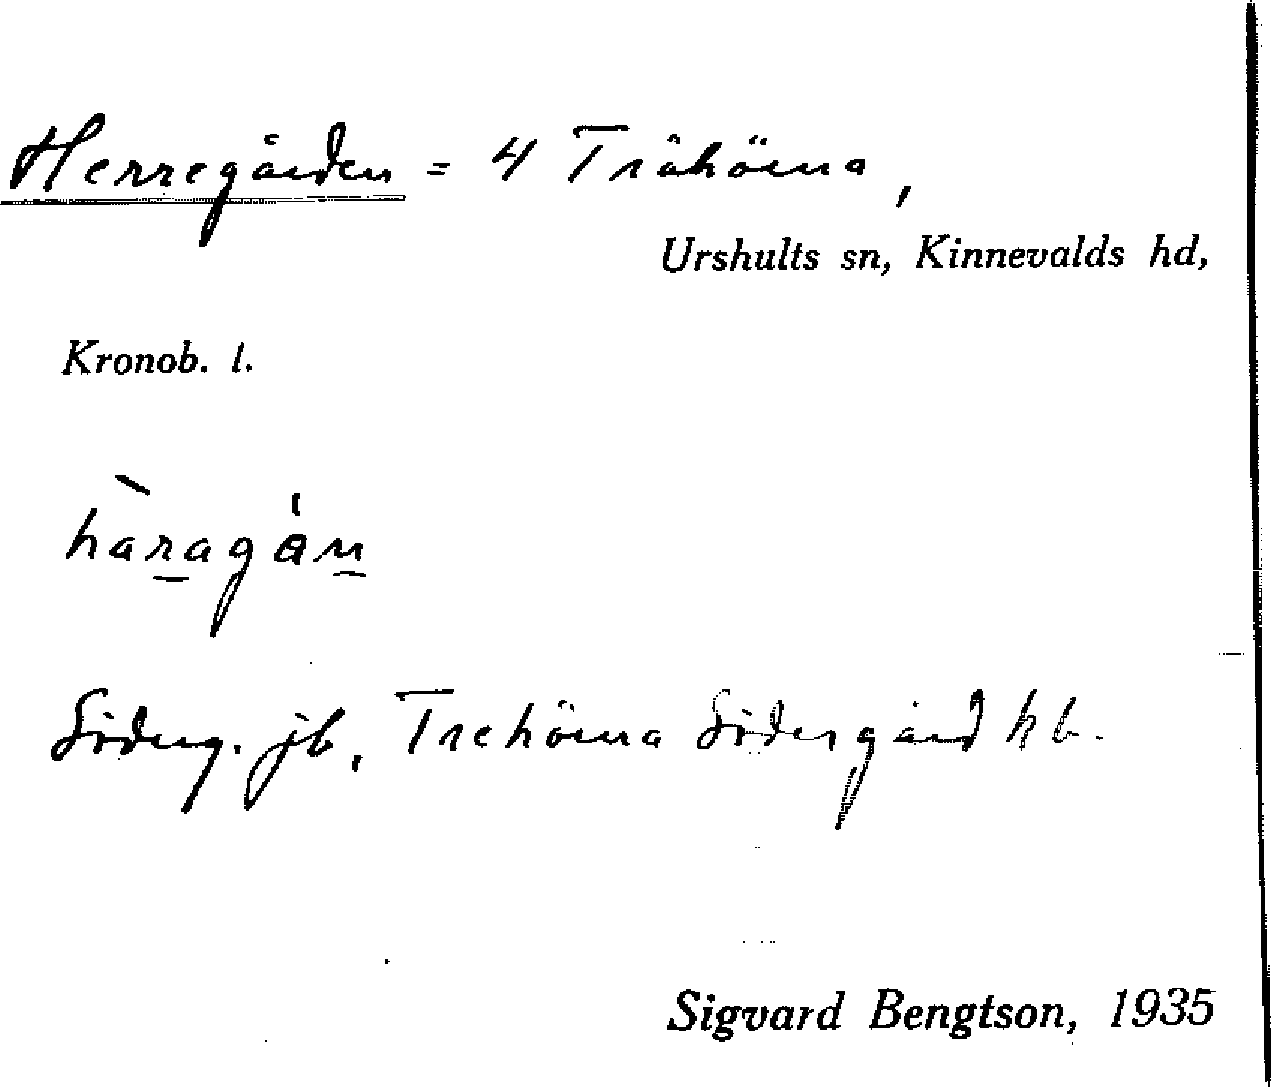 Herregården = 4 Tråhörna,
Urshults sn, Kinnevalds hd,
Kronob. l.
hàragån
Söderg. jb, Trehörna Södergård kb.
Sigvard Bengtson, 1935